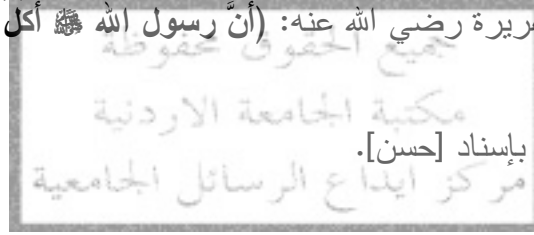 هريرة رضي الله عنه: (أنَّ رسول الله ﷺ أكل
جميع الحقوق محفوظة
مكتبة الجامعة الاردنية
بإسناد [حسن].
مركز ايداع الرسائل الجامعية